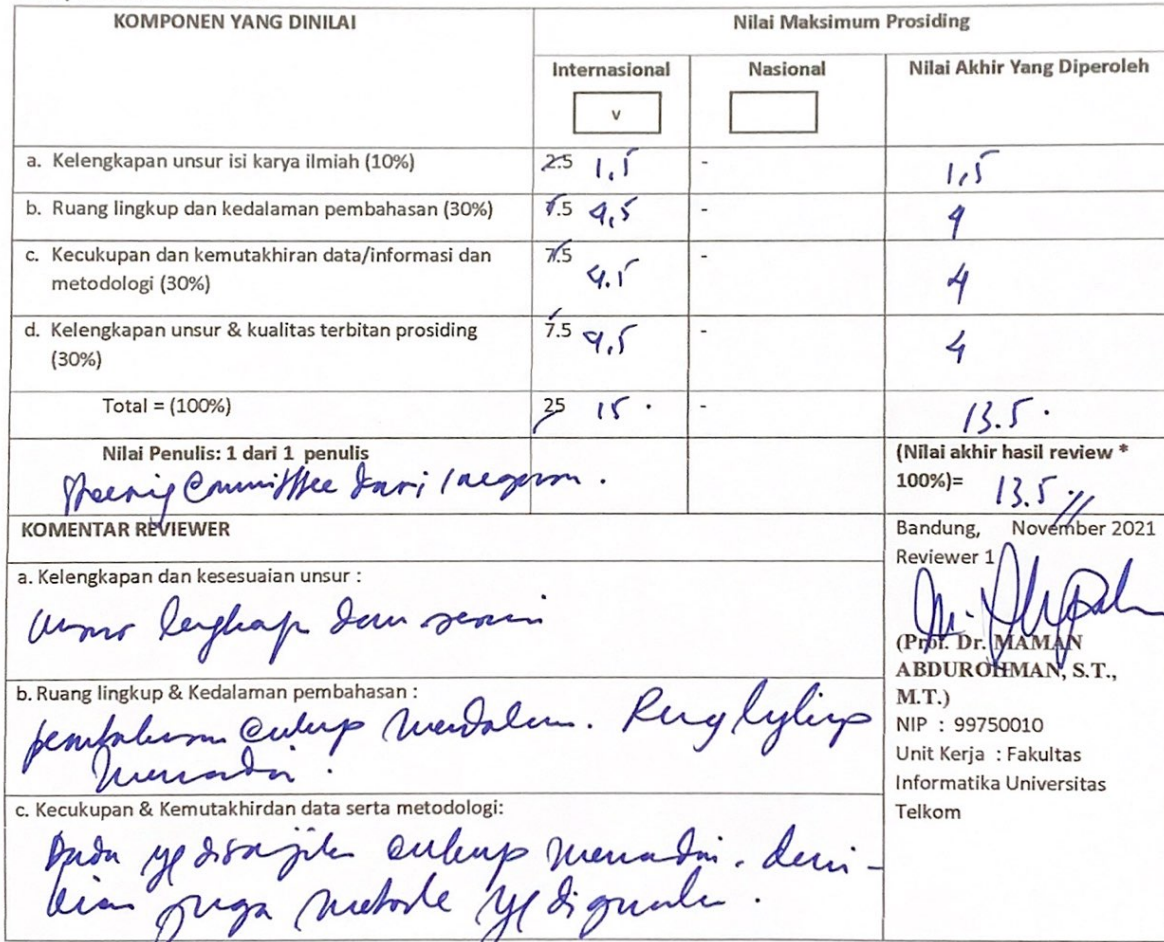 KOMPONEN YANG DINILAI
Nilai Maksimum Prosiding
Internasional
Nasional
Nilai Akhir Yang Diperoleh
v
a. Kelengkapan unsur isi karya ilmiah (10%) 2.5 1,5 - 1,5
b. Ruang lingkup dan kedalaman pembahasan (30%) 7.5 4,5 - 4
c. Kecukupan dan kemutakhiran data/informasi dan 7.5
metodologi (30%) 4.5 - 4
d. Kelengkapan unsur & kualitas terbitan prosiding 7.5 4,5 - 4
(30%)
Total = (100%) 25 15 . - 13.5 .
Nilai Penulis: 1 dari 1 penulis
Steering Committee dari
(Nilai akhir hasil review *
100%)= 13.5
KOMENTAR REVIEWER
a. Kelengkapan dan kesesuaian unsur :
unsur lengkap dan sesuai
b. Ruang lingkup & Kedalaman pembahasan :
pembahasan cukup mendalam. Ruang lingkup
memadai .
c. Kecukupan & Kemutakhirdan data serta metodologi:
Data yg disajikan cukup memadai. demi-
kian juga metode yg digunakan .
Bandung, November 2021
Reviewer 1
(Prof. Dr. MAMAN
ABDUROHMAN, S.T.,
M.T.)
NIP : 99750010
Unit Kerja : Fakultas
Informatika Universitas
Telkom